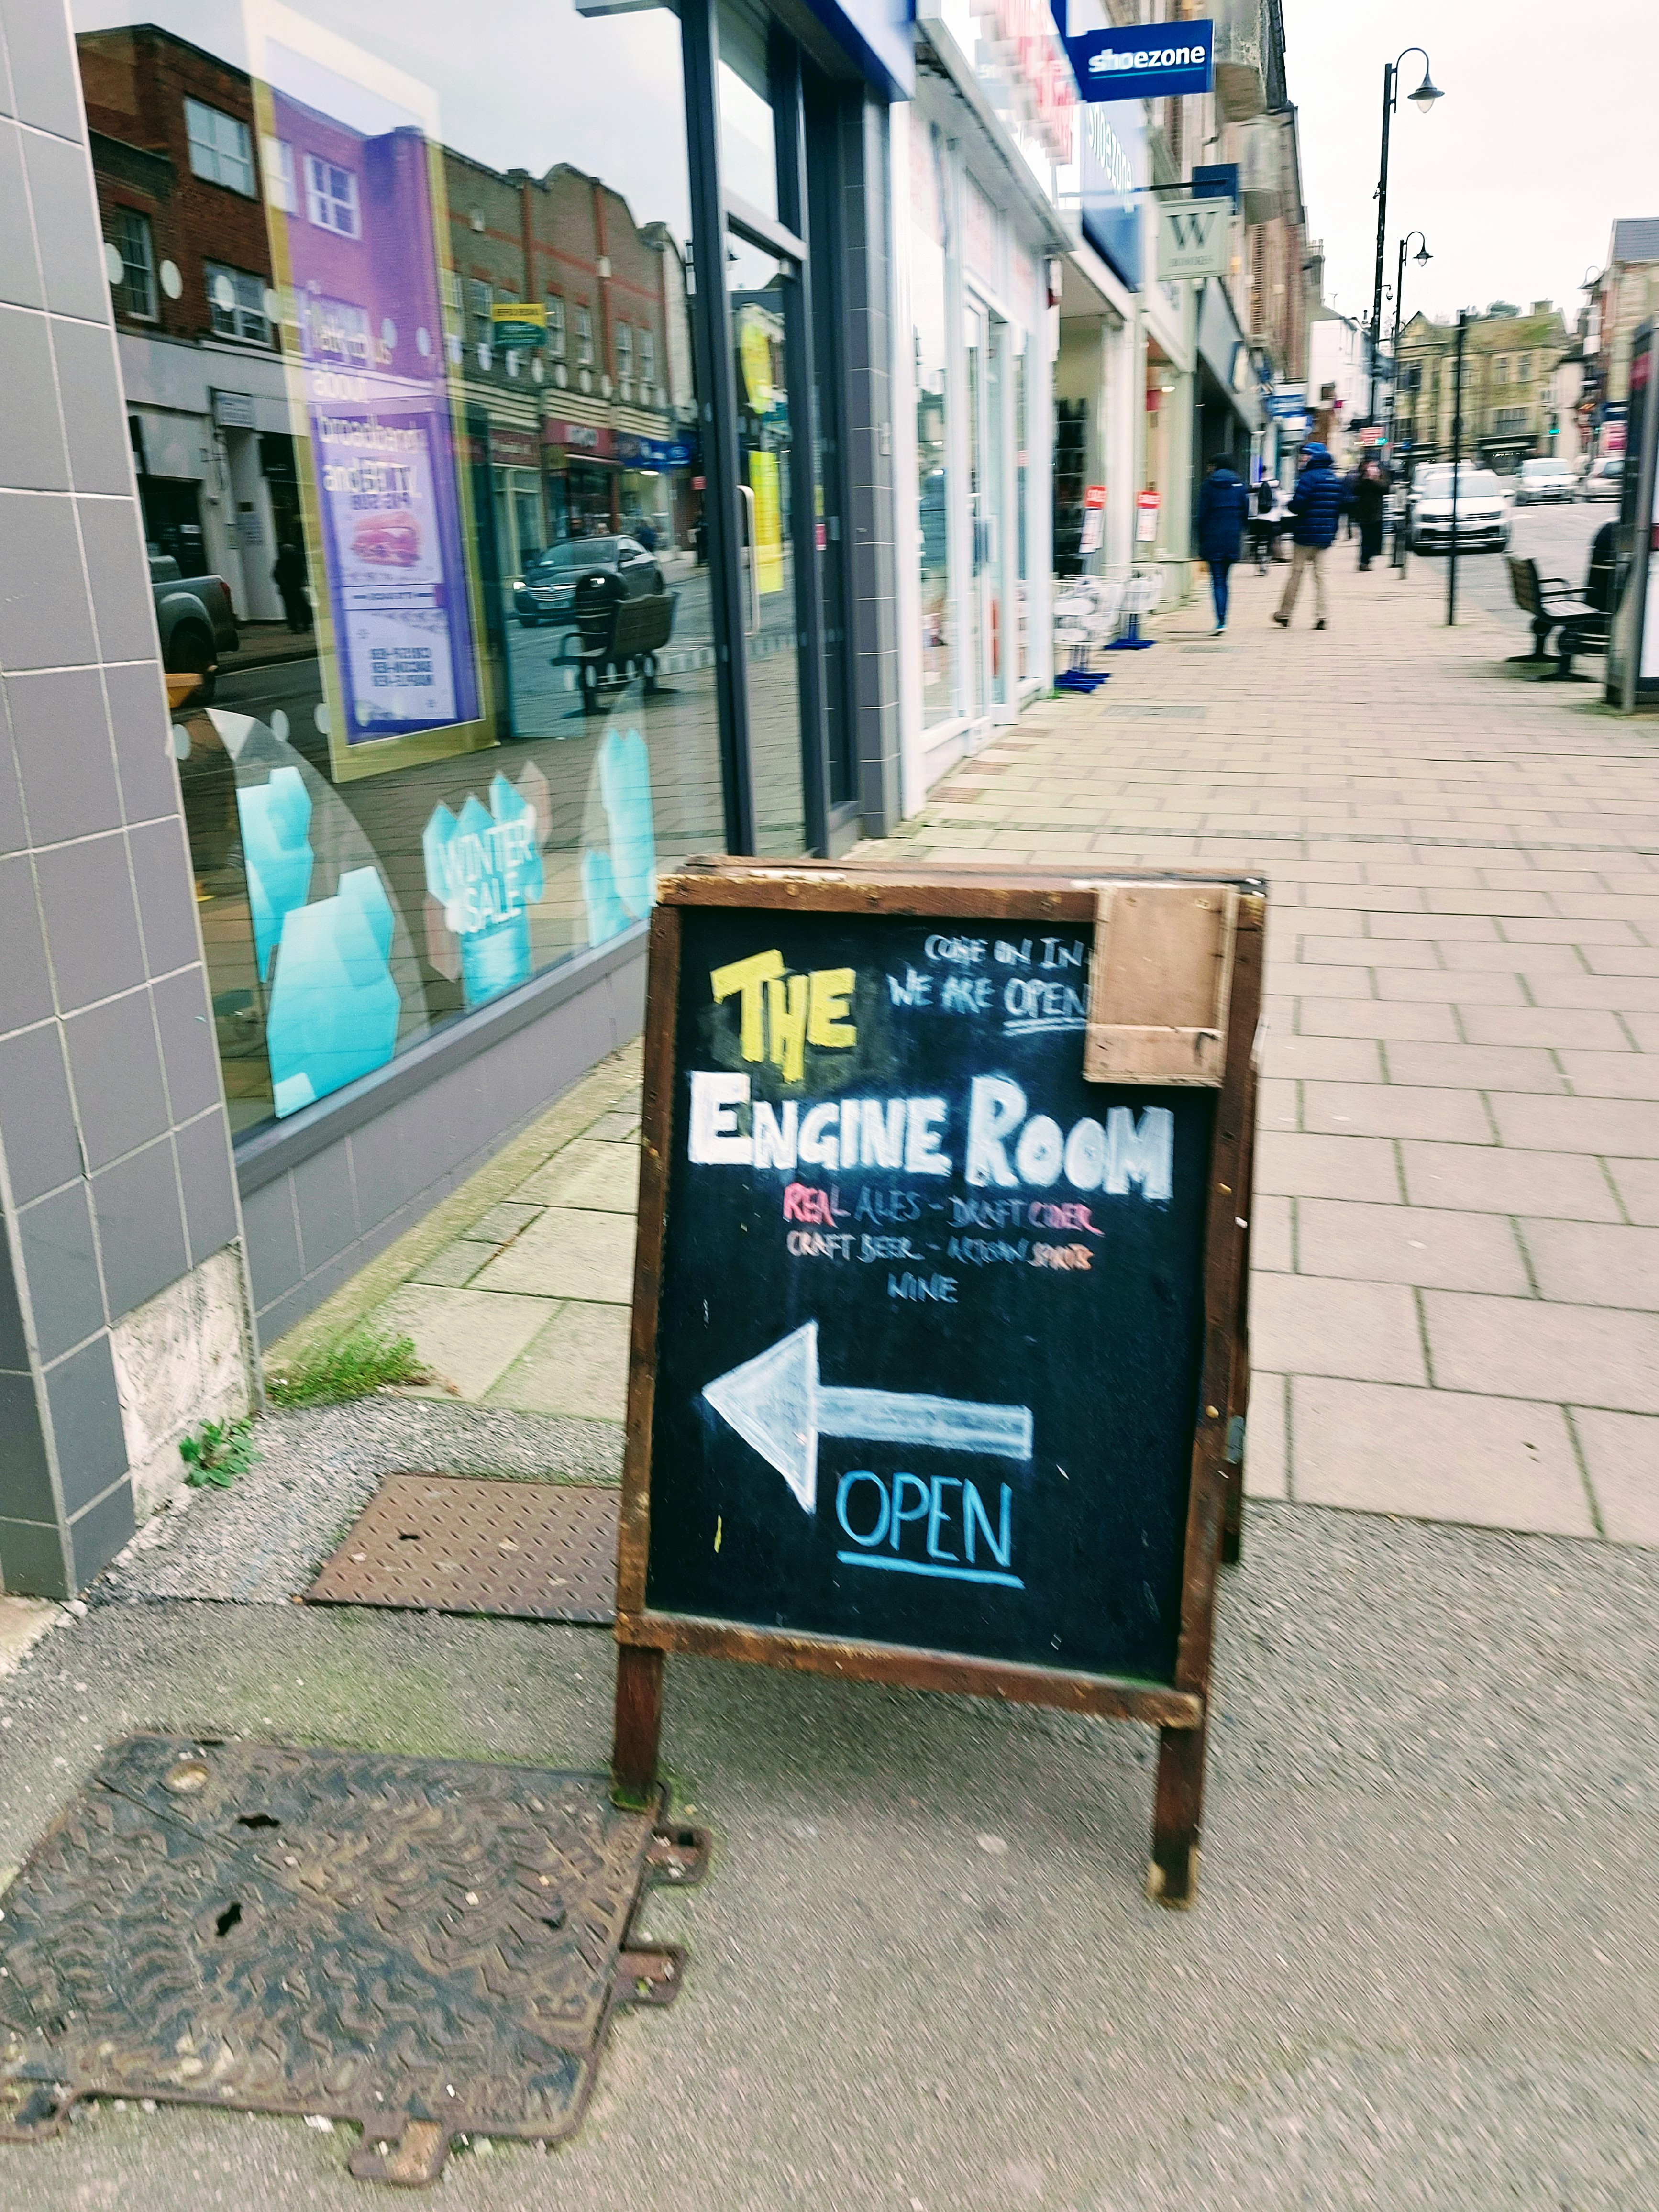 shoezone
shoezone
W
Talk to us
about
broadband
and BT TV
WINTER
SALE
COME ON IN
WE ARE OPEN
THE
ENGINE ROOM
REAL ALES - DRAFT CIDER
CRAFT BEER - ARTISAN SPIRITS
WINE
OPEN